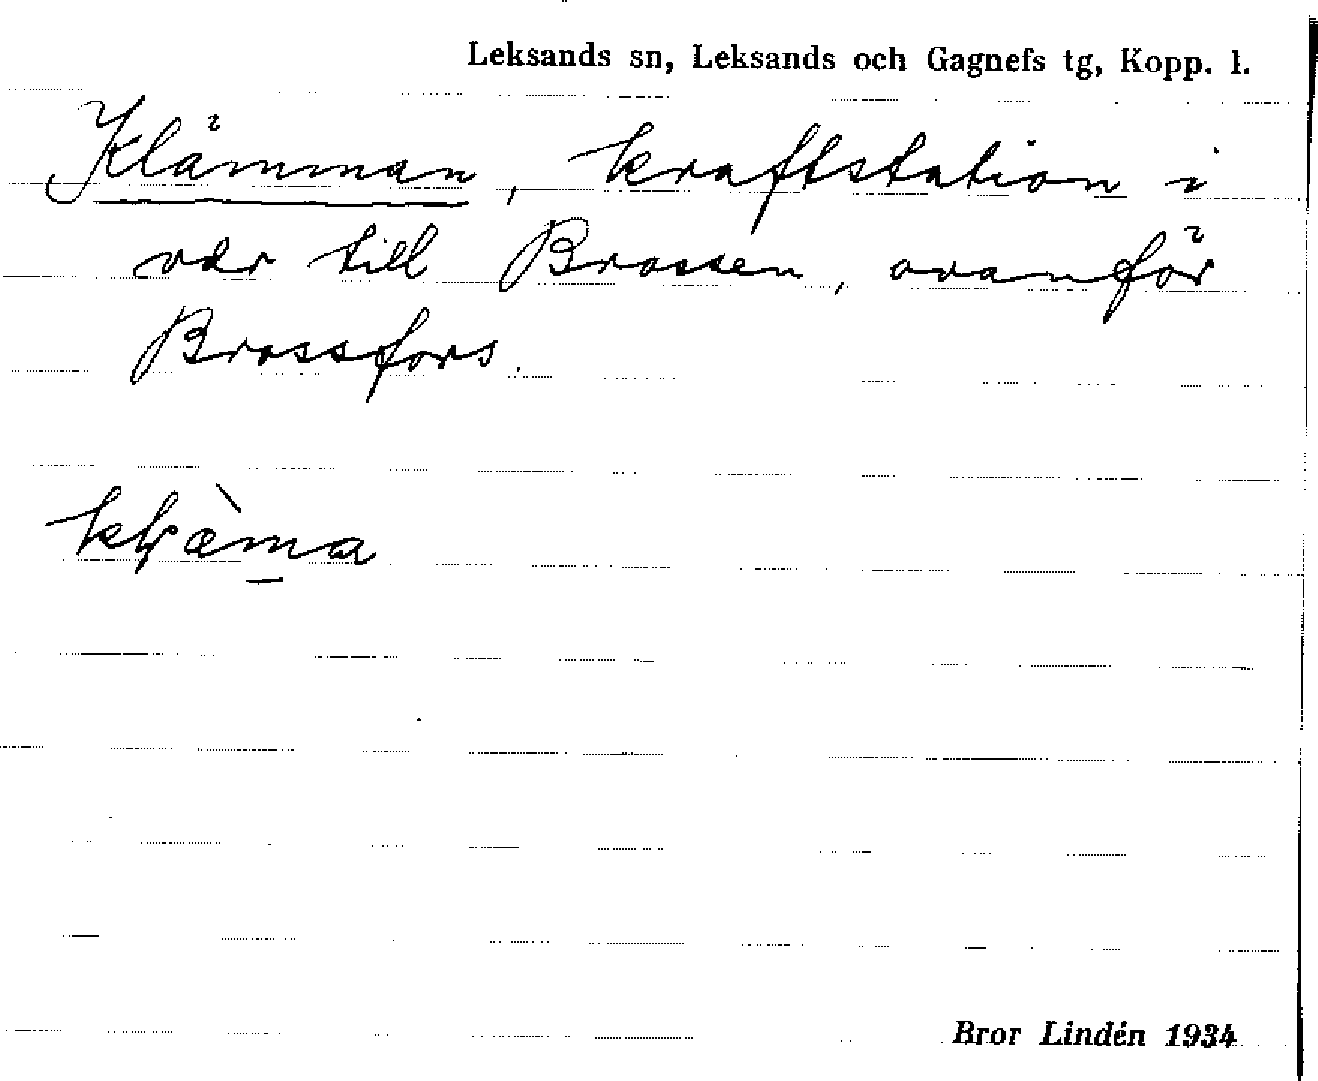 Leksands sn, Leksands och Gagnefs tg, Kopp. l.
Klämman, kraftstation i
vdr till Brossen, ovanför
Brossfors.
Bror Lindén 1934